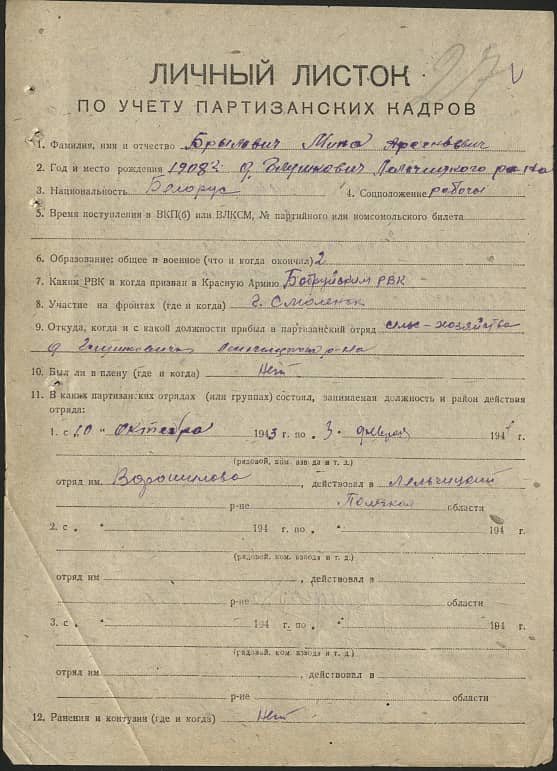 27
ЛИЧНЫЙ ЛИСТОК
ПО УЧЕТУ ПАРТИЗАНСКИХ КАДРОВ
1. Фамилия, имя и отчество Брылович Мина
2. Год и место рождения 1908 г. д. Глушкович Лельчицкого р-на
3. Национальность Белорус 4. Соцположение рабочы
5. Время поступления в ВКП(б) или ВЛКСМ, № партийного или комсомольского билета
6. Образование: общее и военное (что и когда окончил) 2
7. Каким РВК и когда призван в Красную Армию Бобруйским РВК
8. Участие на фронтах (где и когда) г. Смоленск
9. Откуда, когда и с какой должности прибыл в партизанский отряд сельс-хозяйства
д Глушковичи р-на
10. Был ли в плену (где и когда) Нет
11. В каких партизанских отрядах (или группах) состоял, занимаемая должность и район действия
отряда:
1. с „10 " октября 1943 г. по „ 3 " 194 г.
(рядовой, ком. взвода и т. д.)
отряд им. Ворошилова , действовал в Лельчицкий
р-не Полеской области
2. с „ " 194 г. по „ " 194 г.
(рядовой, ком. взвода и т. д.)
отряд им , действовал в
р-не области
3. с „ " 194 г. по „ " 194 г.
(рядовой, ком. взвода и т. д.)
отряд им , действовал в
р-не области
12. Ранения и контузии (где и когда) Нет